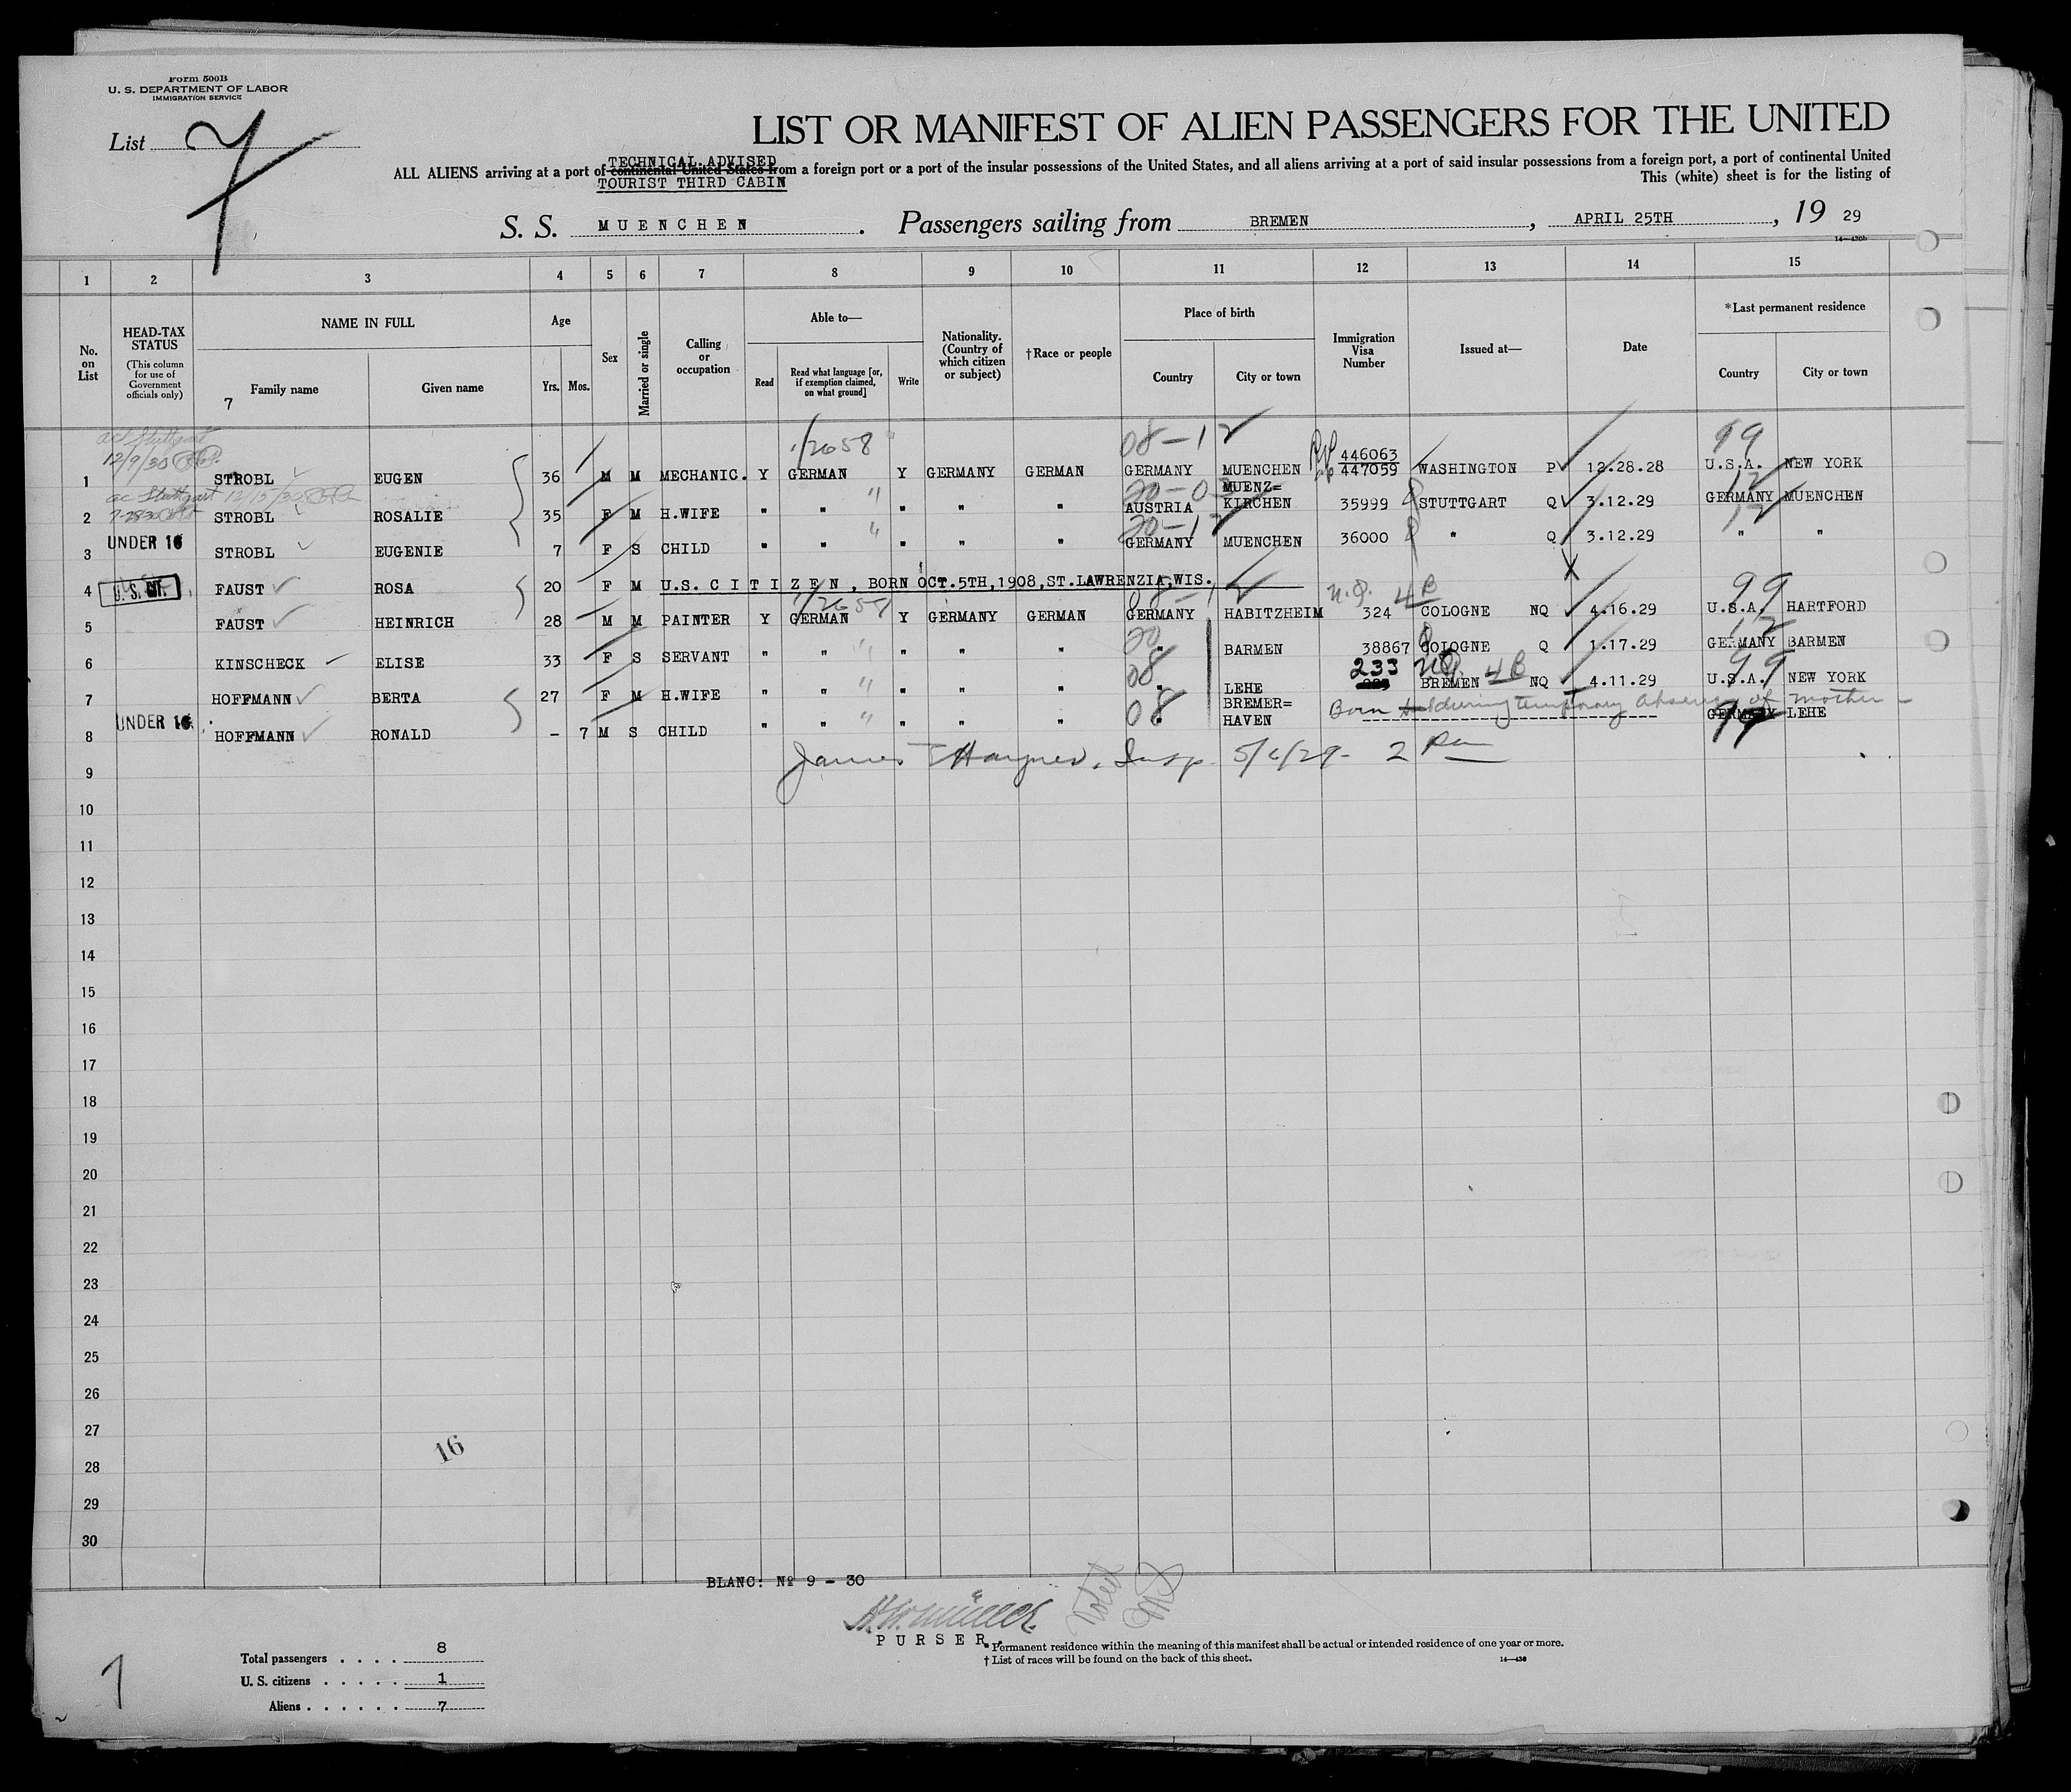 Form 500B
U. S. DEPARTMENT OF LABOR
IMMIGRATION SERVICE
List 7
LIST OR MANIFEST OF ALIEN PASSENGERS FOR THE UNITED
TECHNICAL ADVISED
ALL ALIENS arriving at a port of continental United States from a foreign port or a port of the insular possessions of the United States, and all aliens arriving at a port of said insular possessions from a foreign port, a port of continental United
TOURIST THIRD CABIN
This (white) sheet is for the listing of
S. S. MUENCHEN . Passengers sailing from BREMEN , APRIL 25TH , 19 29
14—430b
1 2 3 4 5 6 7 8 9 10 11 12 13 14 15
No. on List
HEAD-TAX STATUS
(This column for use of Government officials only)
NAME IN FULL
7 Family name
Given name
Age
Yrs. Mos.
Sex
Married or single
Calling or occupation
Able to—
Read
Read what language [or, if exemption claimed, on what ground]
Write
Nationality. (Country of which citizen or subject)
†Race or people
Place of birth
Country
City or town
Immigration Visa Number
Issued at—
Date
*Last permanent residence
Country
City or town
ac Stuttgart
12/9/30
1/2658
08-12
99
446063
1 STROBL EUGEN 36 M M MECHANIC. Y GERMAN Y GERMANY GERMAN GERMANY MUENCHEN 447059 WASHINGTON P 12.28.28 U.S.A. NEW YORK
ac Stuttgart
MUENZ=
2 STROBL ROSALIE 35 F M H.WIFE " " " " " AUSTRIA KIRCHEN 35999 STUTTGART Q 3.12.29 GERMANY MUENCHEN
UNDER 16
3 STROBL EUGENIE 7 F S CHILD " " " " " GERMANY MUENCHEN 36000 " Q 3.12.29 " "
X
4 U.S. CIT. FAUST ROSA 20 F M U.S. CITIZEN, BORN OCT.5TH,1908,ST.LAWRENZIA,WIS.
4B
99
5 FAUST HEINRICH 28 M M PAINTER Y GERMAN Y GERMANY GERMAN GERMANY HABITZHEIM 324 COLOGNE NQ 4.16.29 U.S.A. HARTFORD
6 KINSCHECK ELISE 33 F S SERVANT " " " " " " BARMEN 38867 COLOGNE Q 1.17.29 GERMANY BARMEN
08 233 4B 99
7 HOFFMANN BERTA 27 F M H.WIFE " " " " " " LEHE BREMEN NQ 4.11.29 U.S.A. NEW YORK
UNDER 16
08 BREMER= Born during temporary absence of mother -
8 HOFFMANN RONALD - 7 M S CHILD " " " " " " HAVEN GERMANY LEHE
99
9 James Haynes, Insp 5/6/29- 2 Pm
10
11
12
13
14
15
16
17
18
19
20
21
22
23
24
25
26
27
16
28
29
30
BLANC: Nº 9 - 30
PURSER.
* Permanent residence within the meaning of this manifest shall be actual or intended residence of one year or more.
† List of races will be found on the back of this sheet.
14—430
Total passengers . . . . 8
U. S. citizens . . . . . 1
Aliens . . . . . . 7